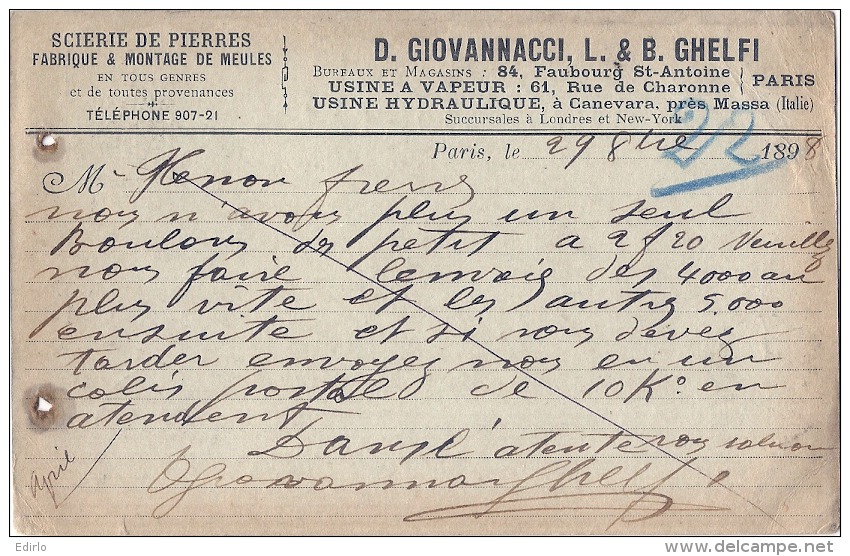 SCIERIE DE PIERRES
FABRIQUE & MONTAGE DE MEULES
EN TOUS GENRES
et de toutes provenances
TÉLÉPHONE 907-21
D. GIOVANNACCI, L. & B. GHELFI
BUREAUX ET MAGASINS : 84, Faubourg St-Antoine
USINE A VAPEUR : 61, Rue de Charonne
PARIS
USINE HYDRAULIQUE, à Canevara, près Massa (Italie)
Succursales à Londres et New-York
2/2
Paris, le 29 8bre 1898
M frères
nous n'avons plus un seul
Boulons de petit a 2f20 Veuillez
nous faire lenvois des 4000 au
plus vite et les autres 5.000
ensuite et si vous devez
tarder envoyez nous en un
colis postal de 10 Ko en
atendent
Dans l'atente vous saluons
Giovannacci Ghelfi
Avril
Edirlo
delcampe.net